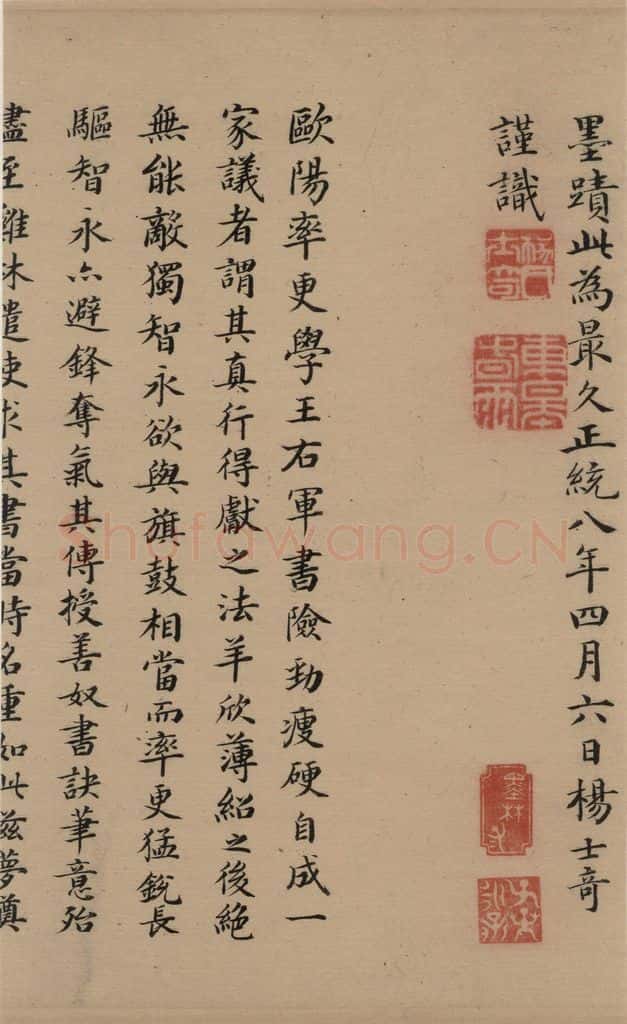 墨蹟此為最久正統八年四月六日楊士奇
謹識
歐陽率更學王右軍書險勁瘦硬自成一
家議者謂其真行得獻之法羊欣薄紹之後絕
無能敵獨智永欲與旗鼓相當而率更猛銳長
驅智永亦避鋒奪氣其傳授善奴書訣筆意殆
盡至雞林遣使求其書當時名重如此茲夢奠
楊氏士奇
Shufawang.CN